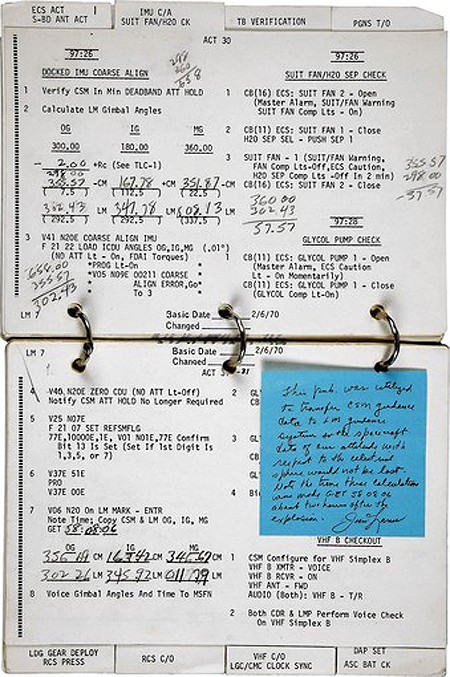 ECS ACT
S-BD ANT ACT
IMU C/A
SUIT FAN/H2O CK
TB VERIFICATION
PGNS T/O
ACT 30
97:26
DOCKED IMU COARSE ALIGN
298
360
658
1 Verify CSM In Min DEADBAND ATT HOLD
2 Calculate LM Gimbal Angles
OG IG MG
300.00 180.00 360.00
- 2.00 +Rc (See TLC-1)
298.00
355.57 -CM 167.78 +CM 351.87 -CM
( 7.5 ) (112.5 ) ( 22.5 )
302.43 LM 347.78 LM 008.13 LM
(292.5 ) (292.5 ) (337.5 )
3 V41 N20E COARSE ALIGN IMU
F 21 22 LOAD ICDU ANGLES OG,IG,MG (.01°)
(NO ATT Lt - On, FDAI Torques)
*PROG Lt-On *
*V05 N09E 00211 COARSE *
* ALIGN ERROR,Go*
* To 3 *
658.00
355.57
302.43
97:26
SUIT FAN/H2O SEP CHECK
1 CB(16) ECS: SUIT FAN 2 - Open
(Master Alarm, SUIT/FAN Warning
SUIT FAN Comp Lts - On)
2 CB(11) ECS: SUIT FAN 1 - Close
H2O SEP SEL - PUSH SEP 1
3 SUIT FAN - 1 (SUIT/FAN Warning,
FAN Comp Lts-Off,ECS Caution,
H2O SEP Comp Lts -Off In 2 min)
CB(16) ECS: SUIT FAN 2 - Close
355.57
298.00
-37 57
360.00
302.43
57.57
97:28
GLYCOL PUMP CHECK
1 CB(16) ECS: GLYCOL PUMP 1 - Open
(Master Alarm, ECS Caution
Lt - On Momentarily)
CB(16) ECS: GLYCOL PUMP 1 - Close
(GLYCOL Comp Lt-On)
LM 7
Basic Date 2/6/70
Changed
LM 7
Basic Date 2/6/70
Changed
4 V40 N20E ZERO CDU (NO ATT Lt-Off)
Notify CSM ATT HOLD No Longer Required
5 V25 N07E
F 21 07 SET REFSMFLG
77E,10000E,1E, V01 N01E,77E Confirm
Bit 13 Is Set (Set If 1st Digit Is
1,3,5, or 7)
6 V37E 51E
PRO
V37E 00E
7 V06 N20 On LM MARK - ENTR
Note Time; Copy CSM & LM OG, IG, MG
GET 58:08:06
OG IG MG
CM CM CM
LM LM LM
8 Voice Gimbal Angles And Time To MSFN
This pub. was utilized
to transfer CSM guidance
data to LM guidance
system so the spacecraft
data of our attitude with
respect to the celestial
sphere would not be lost.
Note the time these calculations
were made GET 58 08 06
about two hours after the
explosion.
VHF B CHECKOUT
1 CSM Configure for VHF Simplex B
VHF B XMTR - VOICE
VHF B RCVR - ON
VHF ANT - FWD
AUDIO (Both): VHF B - T/R
2 Both CDR & LMP Perform Voice Check
On VHF Simplex B
LDG GEAR DEPLOY
RCS PRESS
RCS C/O
VHF C/O
LGC/CMC CLOCK SYNC
DAP SET
ASC BAT CK